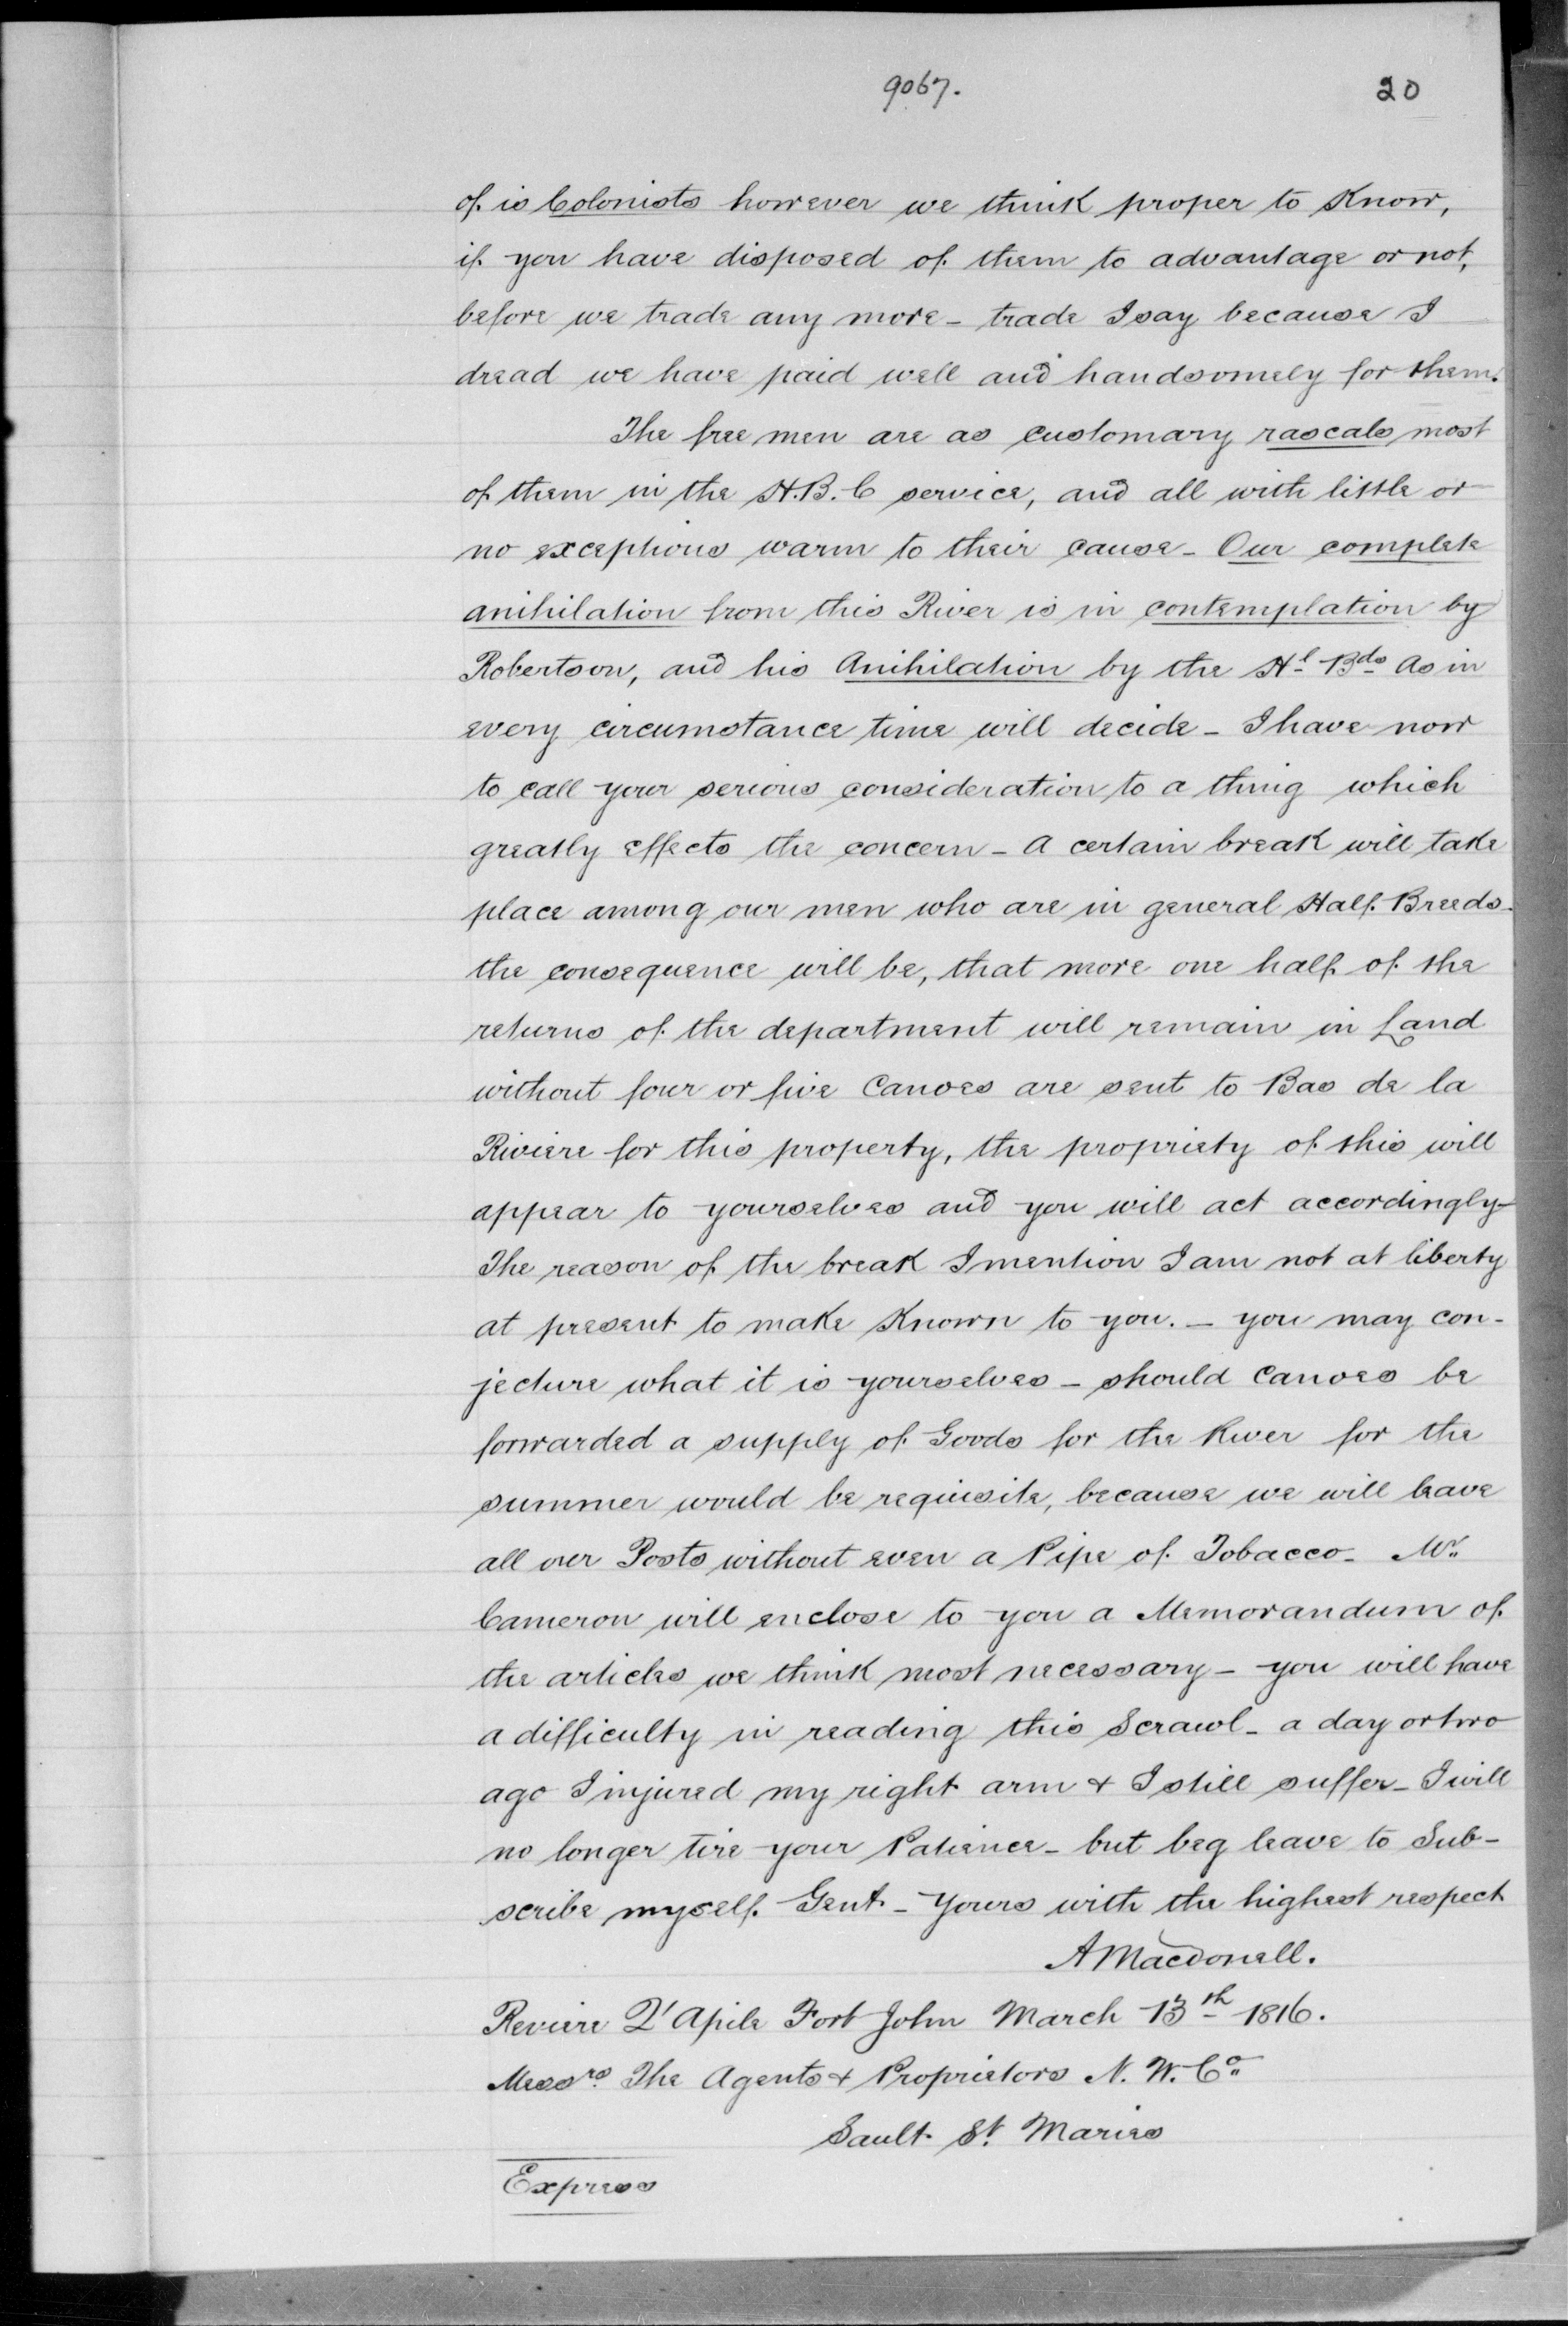 9067.
20
of is Colonists however we think proper to Know,
if you have disposed of them to advantage or not,
before we trade any more - trade I say because I
dread we have paid well and handsomely for them.
The free men are as customary rascals most
of them in the H.B.C service, and all with little or
no exceptions warm to their cause - Our complete
anihilation from this River is in contemplation by
Robertson, and his Anihilation by the Hl Bds As in
every circumstance time will decide - I have now
to call your serious consideration to a thing which
greatly effects the concern - A certain break will take
place among our men who are in general Half Breeds -
the consequence will be, that more one half of the
returns of the department will remain in Land
without four or five Canoes are sent to Bas de la
Riviere for this property, the propriety of this will
appear to yourselves and you will act accordingly -
The reason of the break I mention I am not at liberty
at present to make Known to you. - you may con-
jecture what it is yourselves - should Canoes be
forwarded a supply of Goods for the River for the
summer would be requisite, because we will leave
all our Posts without even a Pipe of Tobacco - Mr.
Cameron will enclose to you a Memorandum of
the articles we think most necessary - you will have
a difficulty in reading this Scrawl - a day or two
ago I injured my right arm & I still suffer - I will
no longer tire your Patience - but beg leave to Sub-
scribe myself Gent - Yours with the highest respect
A Macdonell.
Reviere Q'Apile Fort John March 13th 1816.
Messrs. The Agents & Proprietors N. W. Co.
Sault St. Maries
Express